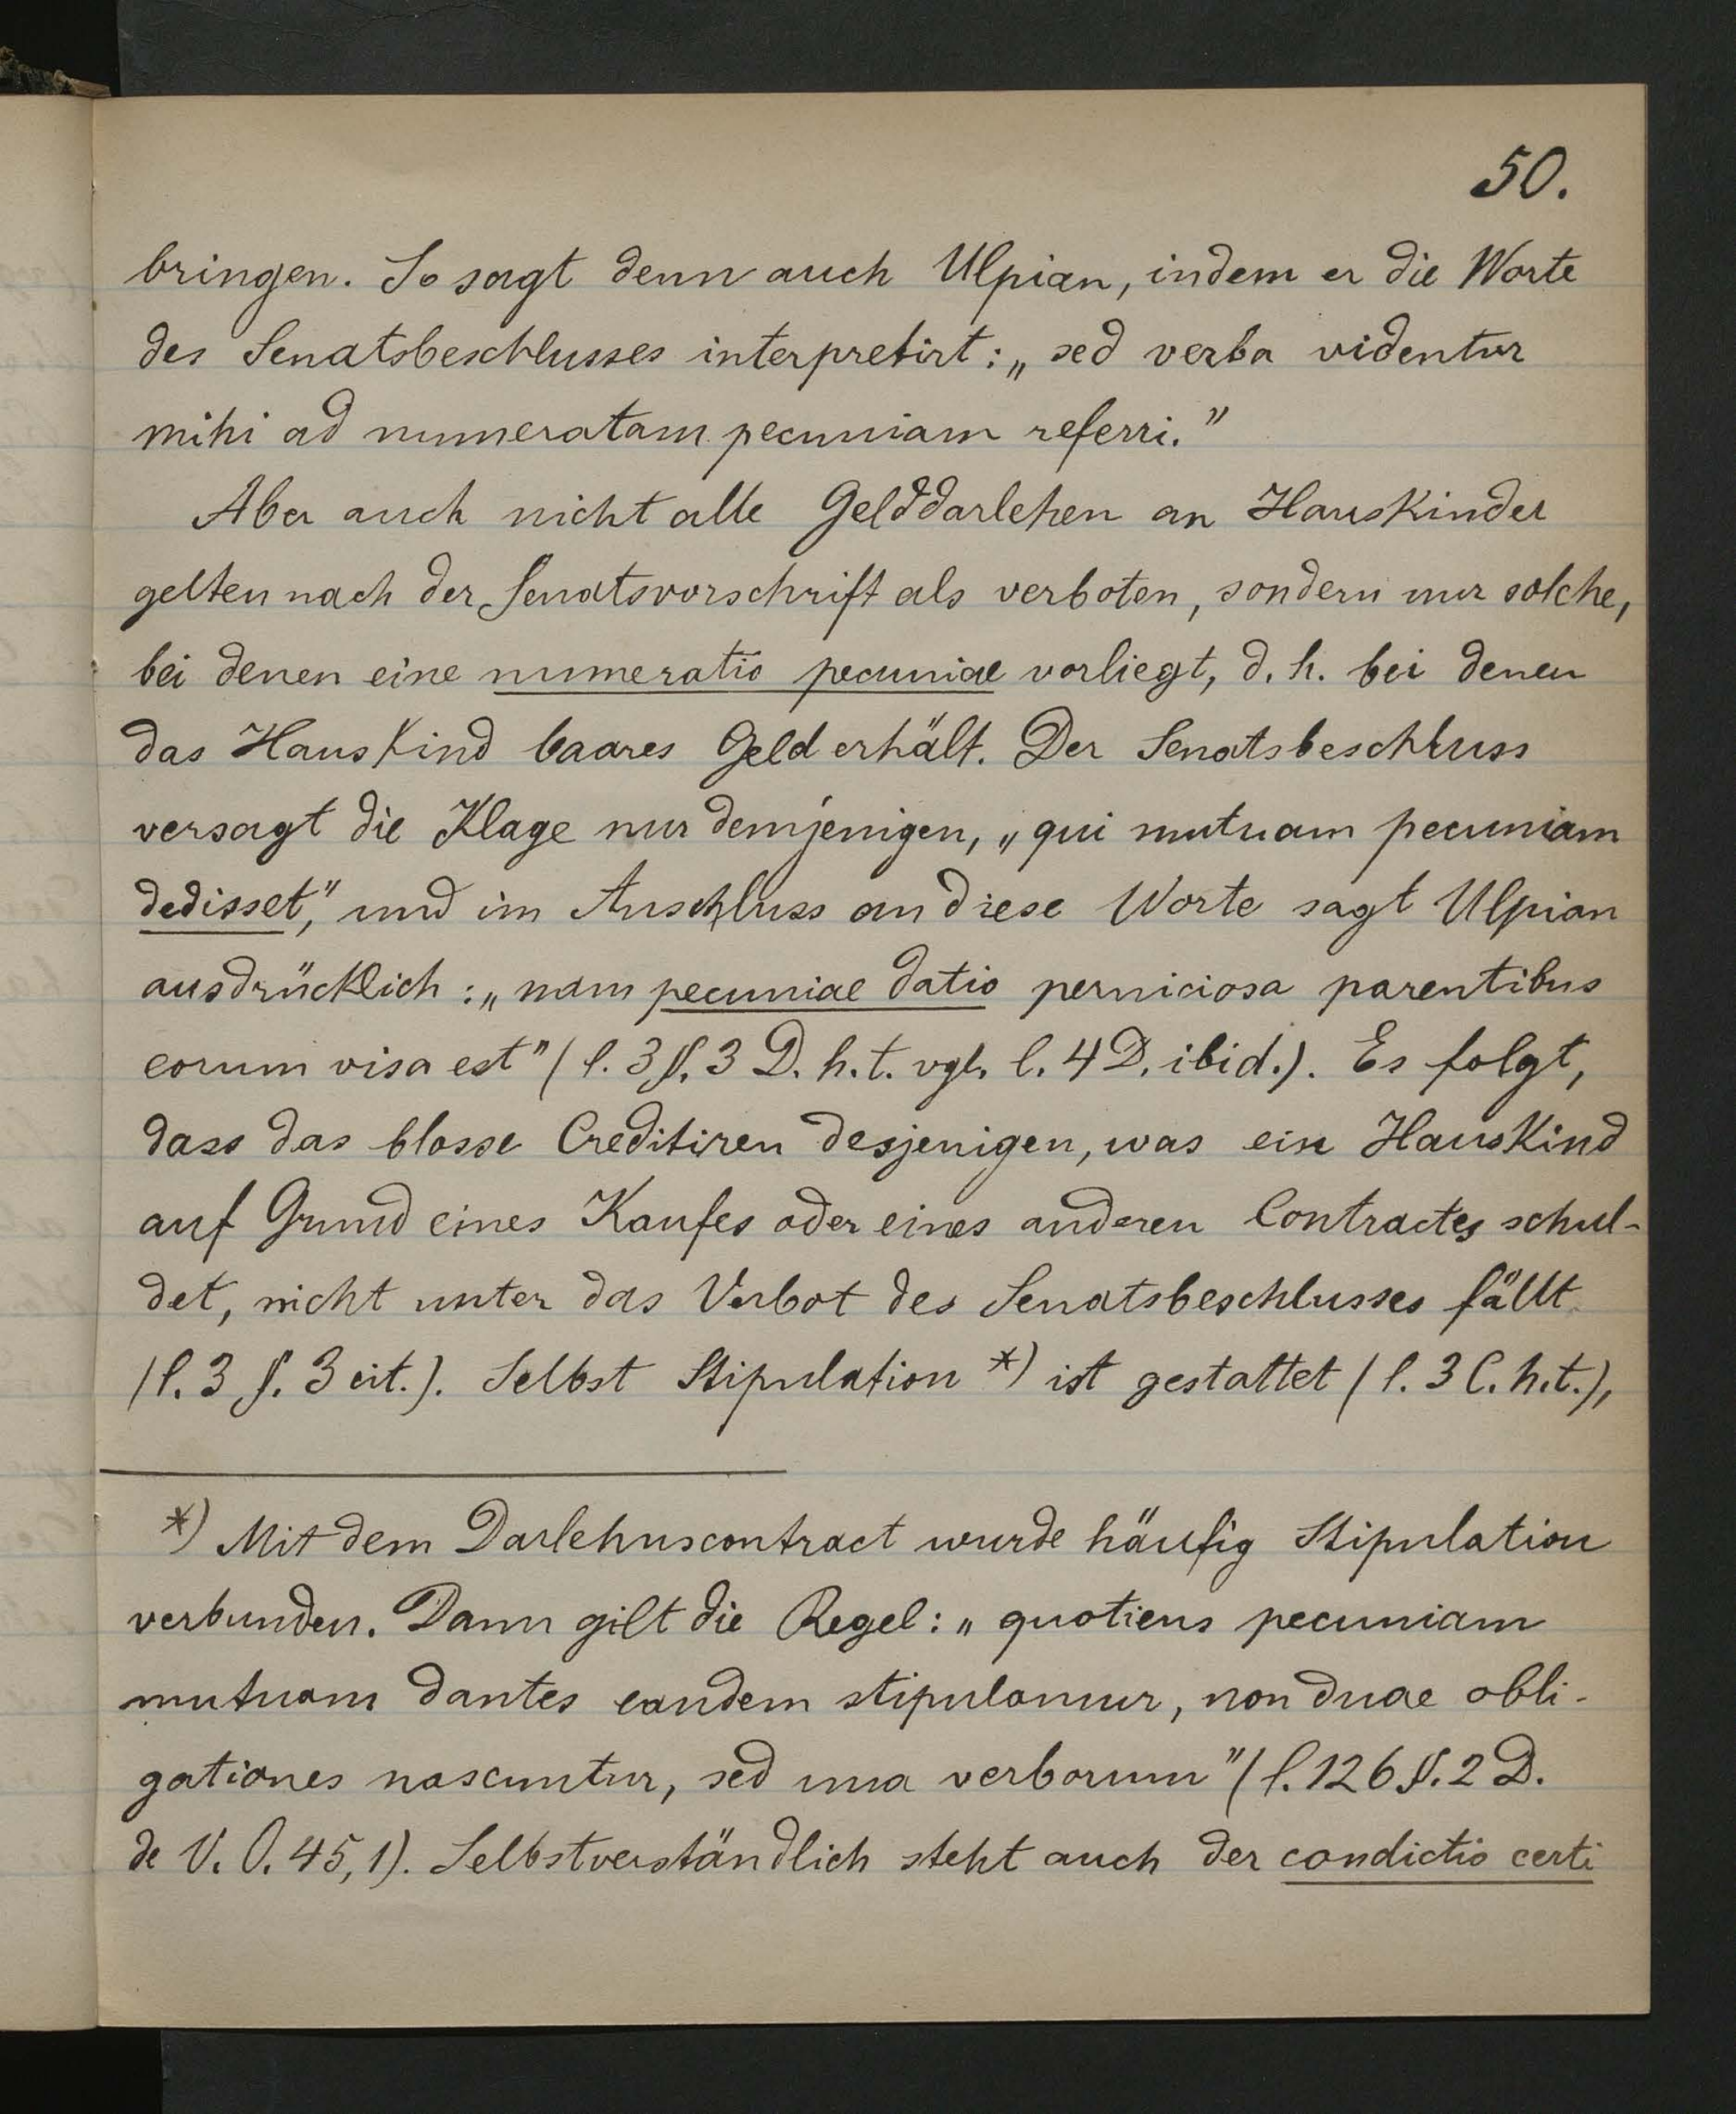 50.
bringen. So sagt denn auch Ulpian, indem er die Worte
des Senatsbeschlusses interpretirt: „sed verba videntur
mihi ad numeratam pecuniam referri."
Aber auch nicht alle Gelddarlehen an Hauskinder
gelten nach der Senatsvorschrift als verboten, sondern nur solche,
bei denen eine numeratio pecuniae vorliegt, d. h. bei denen
das Hauskind baares Geld erhält. Der Senatsbeschluss
versagt die Klage nur demjenigen, „qui mutuam pecuniam
dedisset," und im Anschluss an diese Worte sagt Ulpian
ausdrücklich: „nam pecuniae datio perniciosa parentibus
eorum visa est" (l. 3 §. 3 D. h. t. vgl. l. 4 D. ibid.). Es folgt,
dass das blosse Creditiren desjenigen, was ein Hauskind
auf Grund eines Kaufes oder eines anderen Contractes schul-
det, nicht unter das Verbot des Senatsbeschlusses fällt
(l. 3 §. 3 cit.). Selbst Stipulation *) ist gestattet (l. 3 C. h. t.),
*) Mit dem Darlehnscontract wurde häufig Stipulation
verbunden. Dann gilt die Regel: „quotiens pecuniam
mutuam dantes eandem stipulamur, non duae obli-
gationes nascuntur, sed una verborum" (l. 126 §. 2 D.
de V. O. 45, 1). Selbstverständlich steht auch der condictio certi